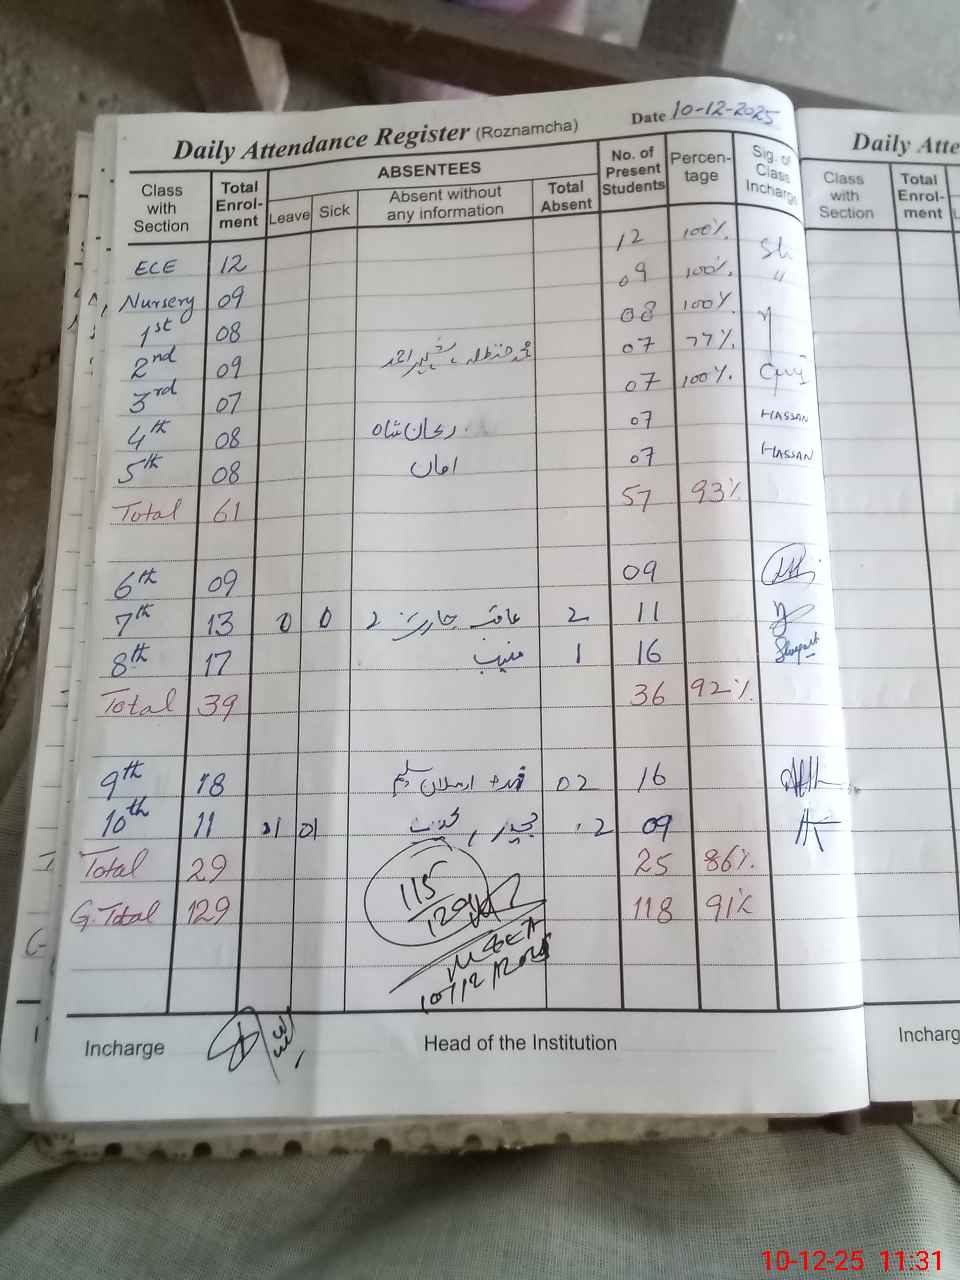 Daily Attendance Register (Roznamcha) Date 10-12-2025
Class with Section Total Enrol-ment ABSENTEES Leave Sick Absent without any information Total Absent No. of Present Students Percen-tage Sig. of Class Incharge
ECE 12 12 100% Sh
Nursery 09 09 100% "
1st 08 08 100%
2nd 09 07 77%
3rd 07 07 100%
4th 08 ریحان شاہ 07 HASSAN
5th 08 امان 07 HASSAN
Total 61 57 93%
6th 09 09
7th 13 0 0 2 2 11
8th 17 منیب 1 16
Total 39 36 92%
9th 18 02 16
10th 11 01 01 02 09
Total 29 25 86%
G.Total 129 118 91%
115
129
MEEA
10/12/2025
Incharge Head of the Institution
Daily Atte
Class with Section Total Enrol-ment L
Incharg
10-12-25 11:31